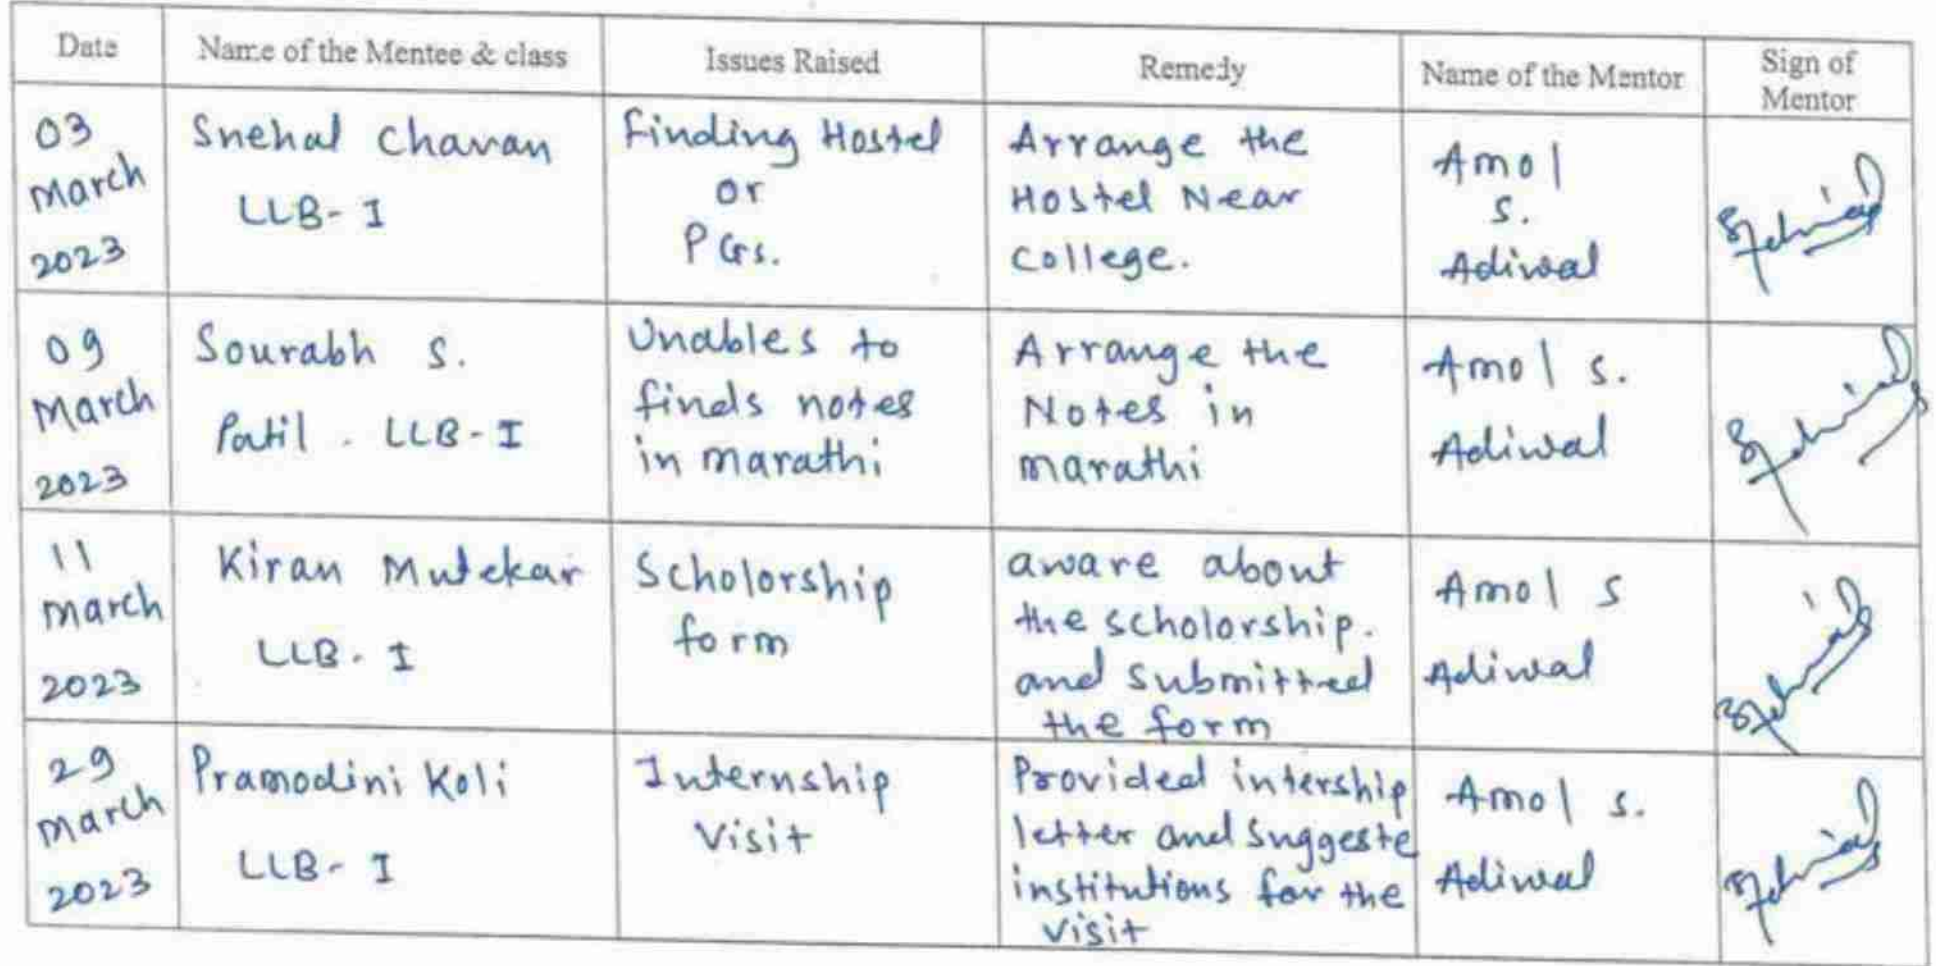 Date
Name of the Mentee & class
Issues Raised
Remedy
Name of the Mentor
Sign of
Mentor
03
March
2023
Snehal Chavan
LLB- I
Finding Hostel
or
PGs.
Arrange the
Hostel Near
College.
Amol
S.
Adiwal
09
March
2023
Sourabh S.
Patil. LLB-I
Unables to
finds notes
in marathi
Arrange the
Notes in
marathi
Amol S.
Adiwal
11
march
2023
Kiran Mutekar
LLB. I
Scholorship
form
aware about
the scholorship.
and submitted
the form
Amol S
Adiwal
29
March
2023
Pramodini Koli
LLB- I
Internship
Visit
Provided intership
letter and suggeste
institutions for the
visit
Amol S.
Adiwal